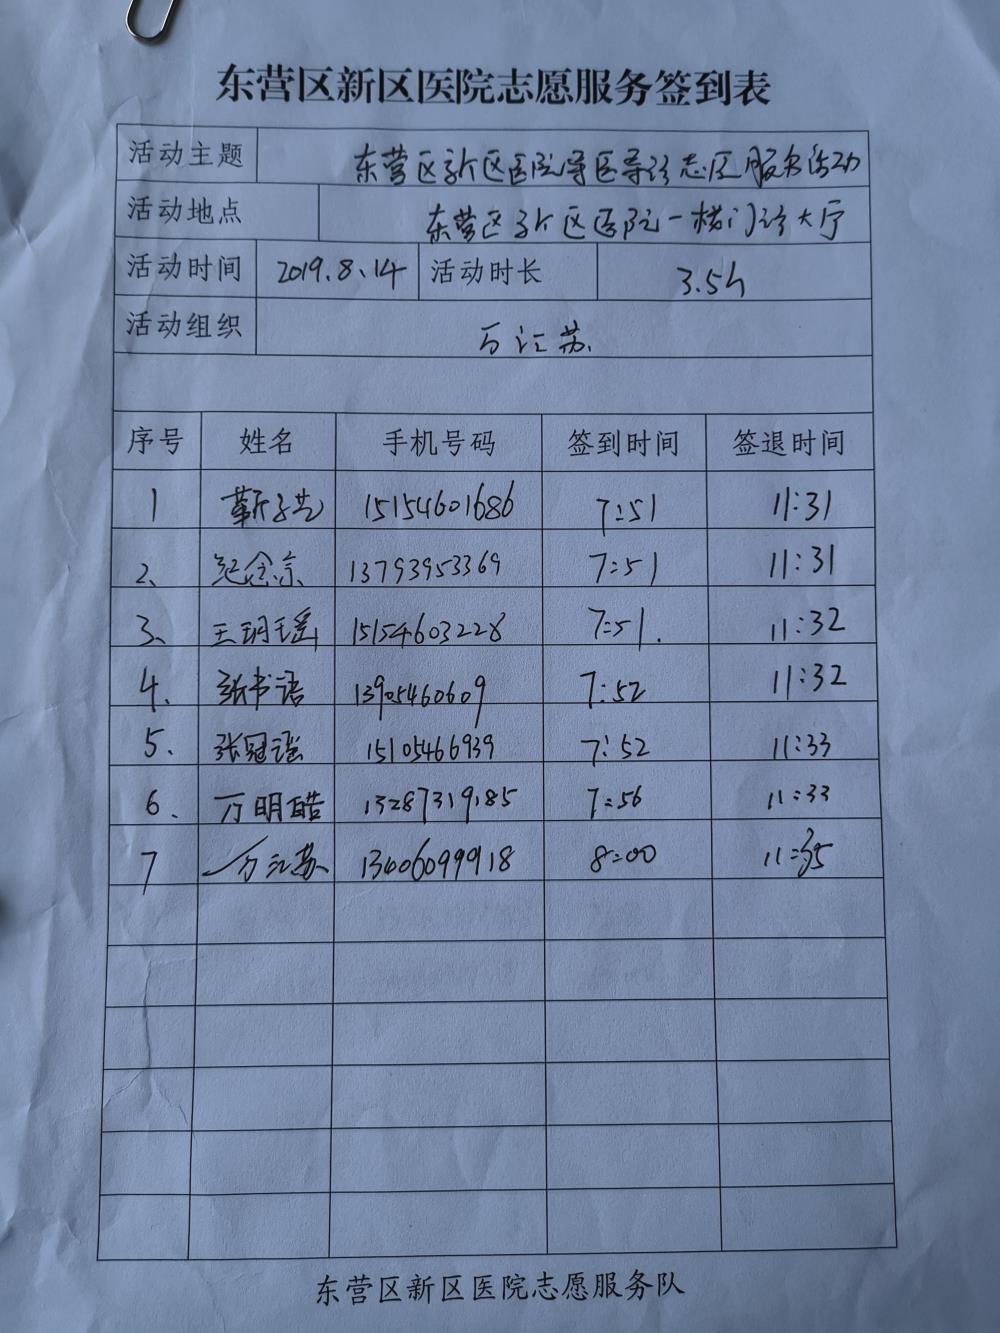 东营区新区医院志愿服务签到表
活动主题 东营区新区医院导医导诊志愿服务活动
活动地点 东营区新区医院一楼门诊大厅
活动时间 2019.8.14 活动时长 3.5h
活动组织 万江苏
序号 姓名 手机号码 签到时间 签退时间
1 靳子艺 15154601686 7:51 11:31
2、 纪念宗 13793953369 7:51 11:31
3、 王玥瑶 15154603228 7:51. 11:32
4、 张书语 13905460609 7:52 11:32
5、 张冠谣 15105466939 7:52 11:33
6、 万明皓 13287319185 7:56 11:33
7 万江苏 13406099918 8:00 11:35
东营区新区医院志愿服务队